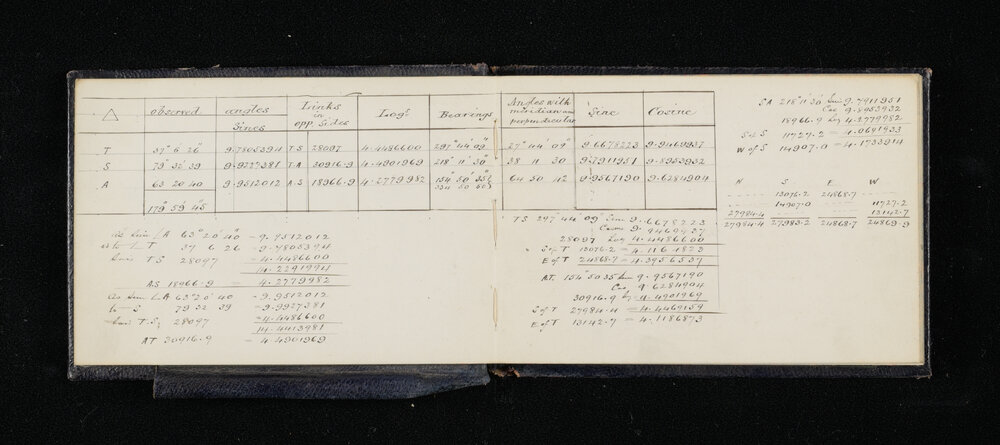 △ observed angles Sines Links in opp. Sides Logs Bearings Angles with meridean and perpendicular Sine Cosine
T 37° 6' 26" 9.7805394 T S 28097 4.4486600 297° 44' 09" 27° 44' 09" 9.6678223 9.9469937
S 79 32 39 9.9927381 T A 30916.9 4.4901969 218° 11' 30" 38 11 30 9.7911951 9.8953932
A 63 20 40 9.9512012 A S 18966.9 4.2779982 154° 50' 35" 64 50 42 9.9567190 9.6284904
334 50 50
179° 59' 45"
As Sine LA 63° 20' 40" = 9.9512012
is to L T 37 6 26 = 9.7805394
line T S 28097 = 4.4486600
14.2291994
AS 18966.9 = 4.2779982
As sine LA 63° 20' 40 = 9.9512012
to S 79 32 39 = 9.9927381
line T.S, 28097 = 4.4486600
14.4413981
AT 30916.9 = 4.4901969
TS 297° 44' 09" Sine 9.6678223
Cosine 9.9469937
28097 Log 4.4486600
S of T 13076.2 = 4.1164823
E of T 24868.7 = 4.3956537
AT. 154° 50 35 Sine 9.9567190
Cos 9.6284904
30916.9 Log 4.4901969
S of T 27984.4 = 4.4469159
E of T 13142.7 = 4.1186873
SA 218° 11' 30" Sine 9.7911951
Cos 9.8953932
18966.9 Log 4.2779982
S of S 11727.2 = 4.0691933
W of S 14907.0 = 4.1733914
N S E W
13076.2 24868.7
14907.0 11727.2
27984.4 13142.7
27984.4 27983.2 24868.7 24869.9